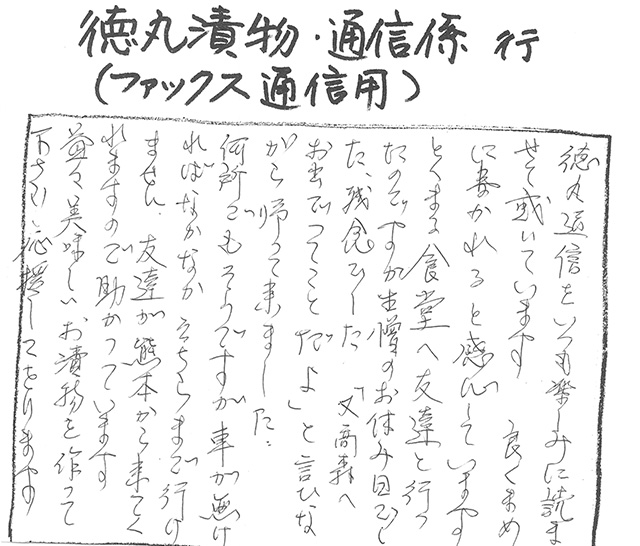 徳丸漬物・通信係 行
(ファックス通信用)
徳丸通信をいつも楽しみに読ま
せて戴いています 良くまめ
に書かれると感心しています
とくまる食堂へ友達と行っ
たのですが生憎のお休み日でし
た、残念でした 「又高森へ
お出でってことだよ」と言ひな
がら帰って来ました。
何所でもそうですが車が無け
ればなかなかそちらまで行け
ません、友達が熊本から来てく
れますので助かっています
益々美味しいお漬物を作って
下さい 応援しております